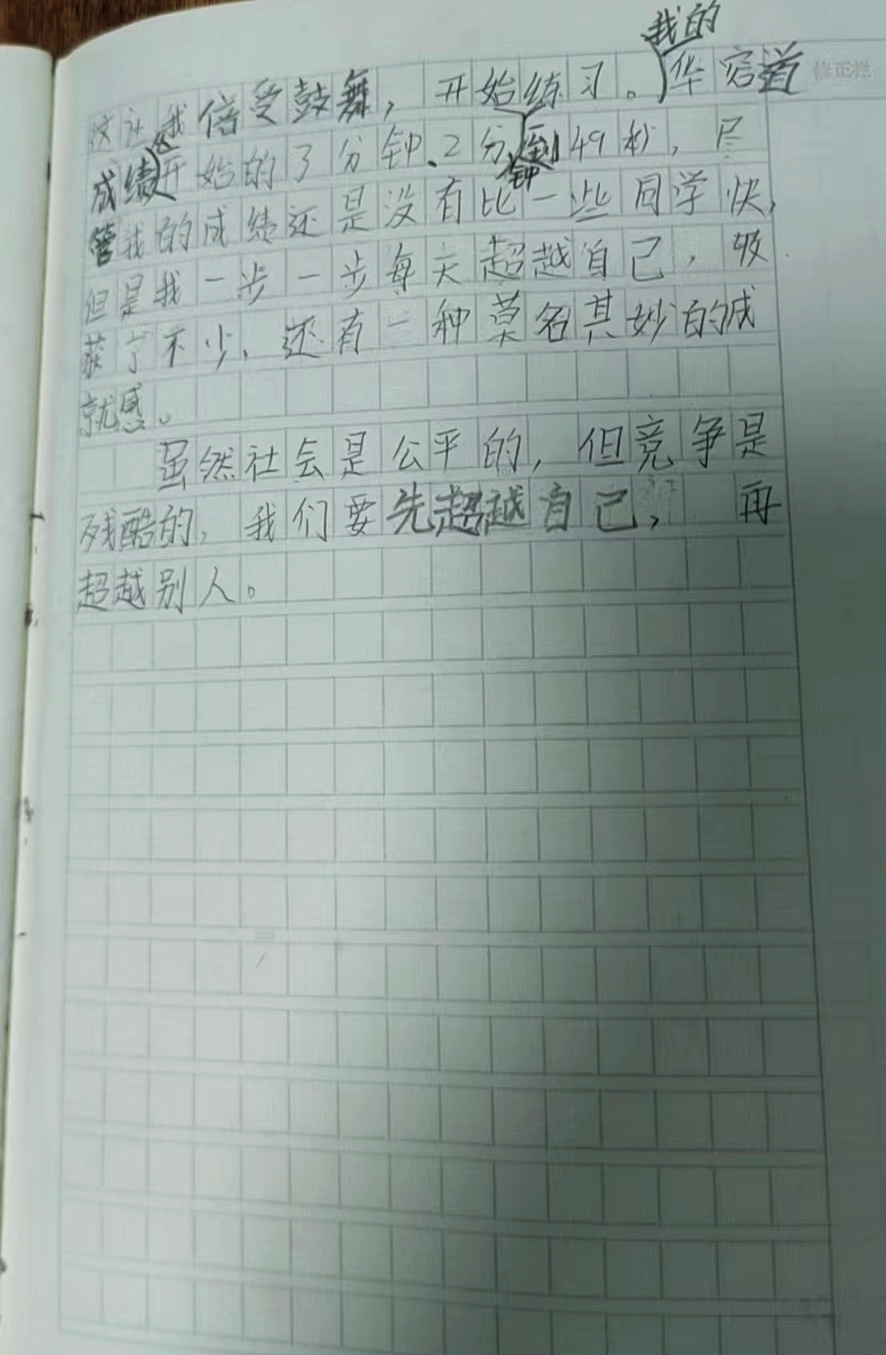 我的
这让我倍受鼓舞，开始练习。华容道 修正栏
成绩从开始的3分钟、2分钟到49秒，尽
管我的成绩还是没有比一些同学快，
但是我一步一步每天超越自己，收
获了不少，还有一种莫名其妙的成
就感。
虽然社会是公平的，但竞争是
残酷的，我们要先超越自己，再
超越别人。